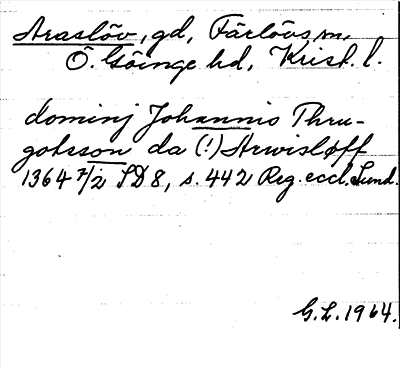 Araslöv, gd, Färlövs sn,
Ö. Göinge hd, Krist. l.
dominj Johannis Thru-
gotsson da (!) Arwisløff
1364 7/2 SD 8, s. 442 Reg. eccl. Lund.
G.L. 1964.